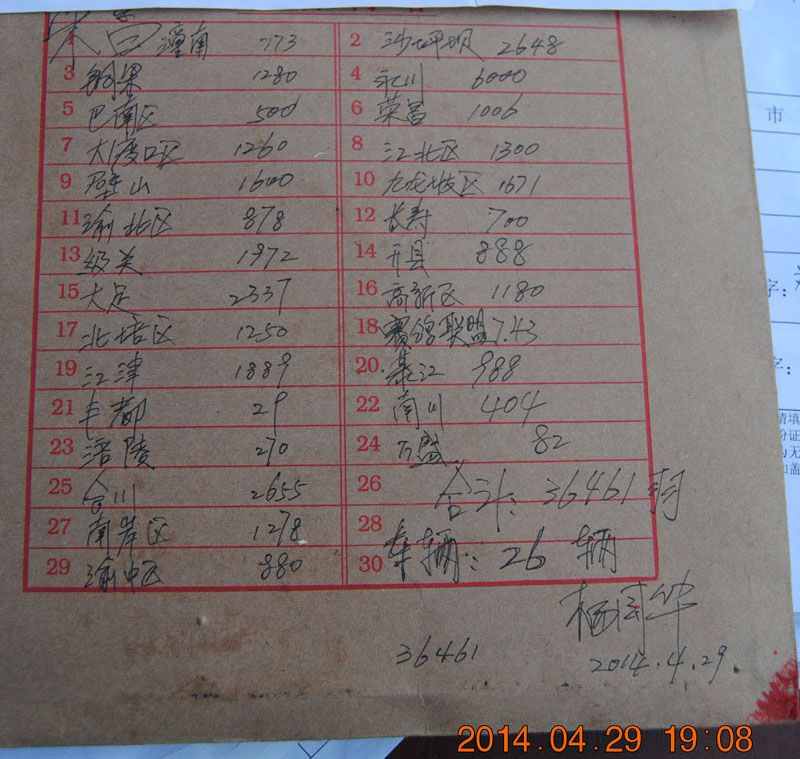 1 潼南 773 2 沙坪坝 2648
3 铜梁 1280 4 永川 6000
5 巴南区 506 6 荣昌 1006
7 大渡口区 1260 8 江北区 1300
9 璧山 1600 10 九龙坡区 1671
11 渝北区 878 12 长寿 700
13 级关 1972 14 开县 888
15 大足 2337 16 高新区 1180
17 北培区 1250 18 赛鸽联盟 743
19 江津 1889 20 綦江 988
21 丰都 29 22 南川 404
23 涪陵 270 24 万盛 82
25 合川 2655 26 合计: 36461羽
27 南岸区 1278 28
29 渝中区 880 30 车辆: 26 辆
36461
2014.4.29
2014.04.29 19:08
市
字: